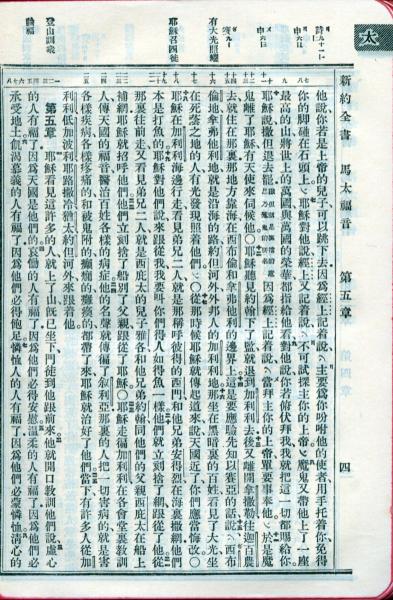 太
新約全書 馬太福音 第五章 四
他說你若是上帝的兒子可以跳下去因爲經上記着說主要爲你吩咐他的使者用手托着你免得
你的脚碰在石頭上耶穌對他說經上又記着說不可試探主你的上帝魔鬼又帶他上了一座
最高的山將世上的萬國與萬國的榮華都指給他看對他說你若俯伏拜我我就把這一切都賜給你
耶穌說撒但退去罷因爲經上記着說當拜主你的上帝單要事奉他於是魔
鬼離了耶穌有天使來伺候他〇耶穌聽見約翰下了監就退到加利利去後又離開拿撒勒往迦百農
去就住在那裏那地方靠海在西布倫和拿弗他利的邊界上這是要應驗先知以賽亞的話說西布
倫地拿弗他利地就是沿海的路約但河外外邦人的加利利地那坐在黑暗裏的百姓看見了大光坐
在死蔭之地的人有光發現照着他們〇從那時候耶穌就傳起道來說天國近了你們應當悔改〇
耶穌在加利利海邊行走看見弟兄二人就是那稱呼彼得的西門和他兄弟安得烈在海裏撒網他們
本是打魚的耶穌對他們說來跟從我我要叫你們得人如得魚一樣他們就立刻捨了網跟從了他從
那裏往前走又看見弟兄二人就是西庇太的兒子雅各和他兄弟約翰同他們的父親西庇太在船上
補網耶穌就招呼他們他們立刻捨了船別了父親跟從了耶穌〇耶穌走遍加利利在各會堂裏敎訓
人傳天國的福音醫治百姓各樣的病症他的名聲就傳徧了敘利亞那裏的人把一切害病的就是害
各樣疾病各樣疼痛的和被鬼附的癲癇的癱瘓的都帶了來耶穌就治好了他們當下有許多人從加
利利低加波利耶路撒冷猶太約但河外來跟着他
第五章 耶穌看見這許多的人就上了山旣已坐下門徒到他跟前來他就開口敎訓他們說虛心
的人有福了因爲天國是他們的哀慟的人有福了因爲他們必得安慰溫柔的人有福了因爲他們必
承受地土飢渴慕義的人有福了因爲他們必得飽足憐恤人的人有福了因爲他們必蒙憐恤淸心的
有大光照耀
耶穌召四徒
登山訓衆
論福